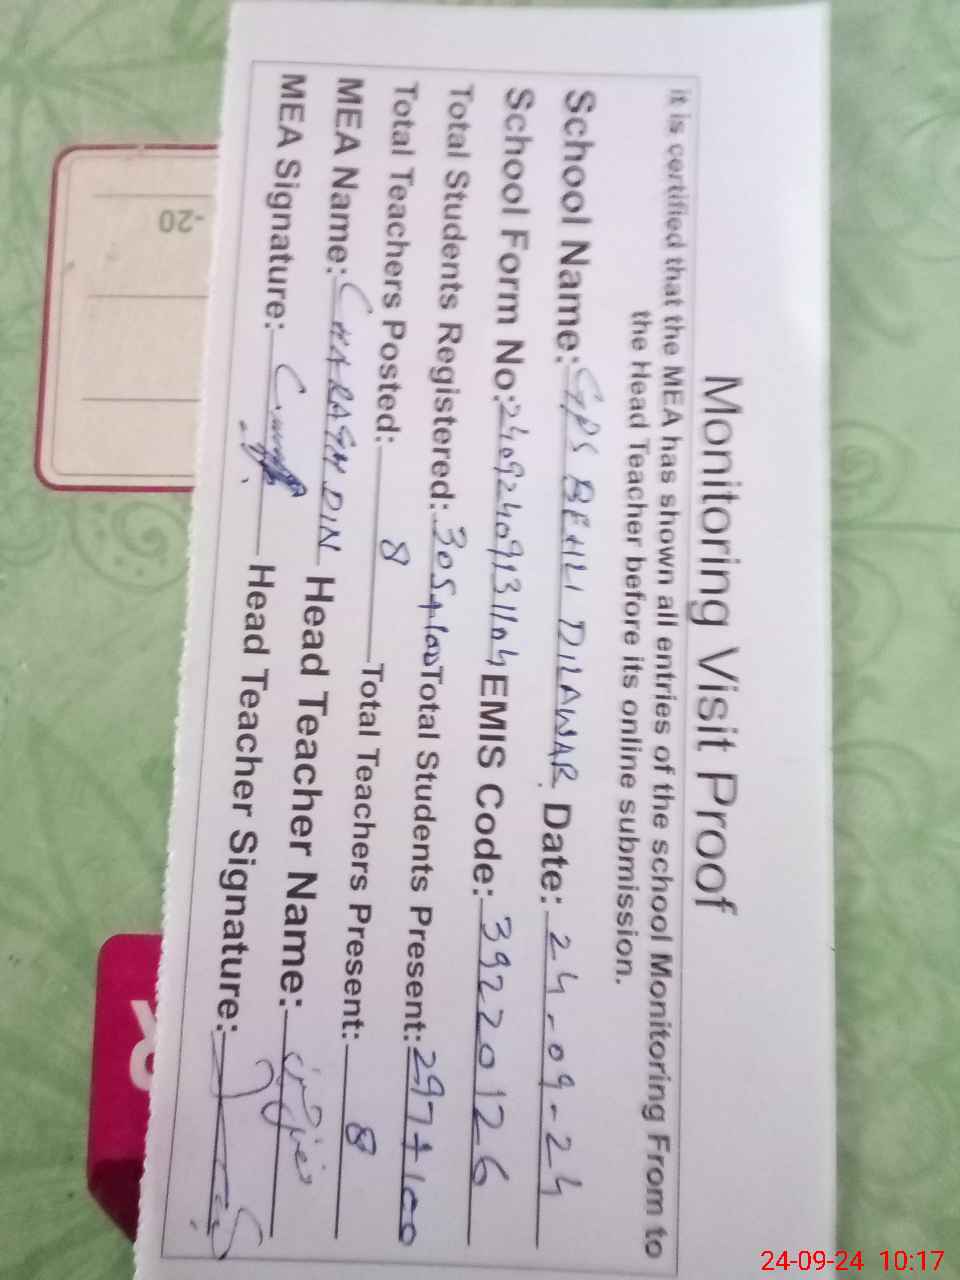 Monitoring Visit Proof
it is certified that the MEA has shown all entries of the school Monitoring From to
the Head Teacher before its online submission.
School Name: GPS BEHLI DILAWAR Date: 24-09-24
School Form No: 24092409131104 EMIS Code: 39220126
Total Students Registered: 305+100 Total Students Present: 297+100
Total Teachers Posted: 8 Total Teachers Present: 8
MEA Name: CHARAGH DIN Head Teacher Name:
MEA Signature: Head Teacher Signature:
-20
%
24-09-24 10:17